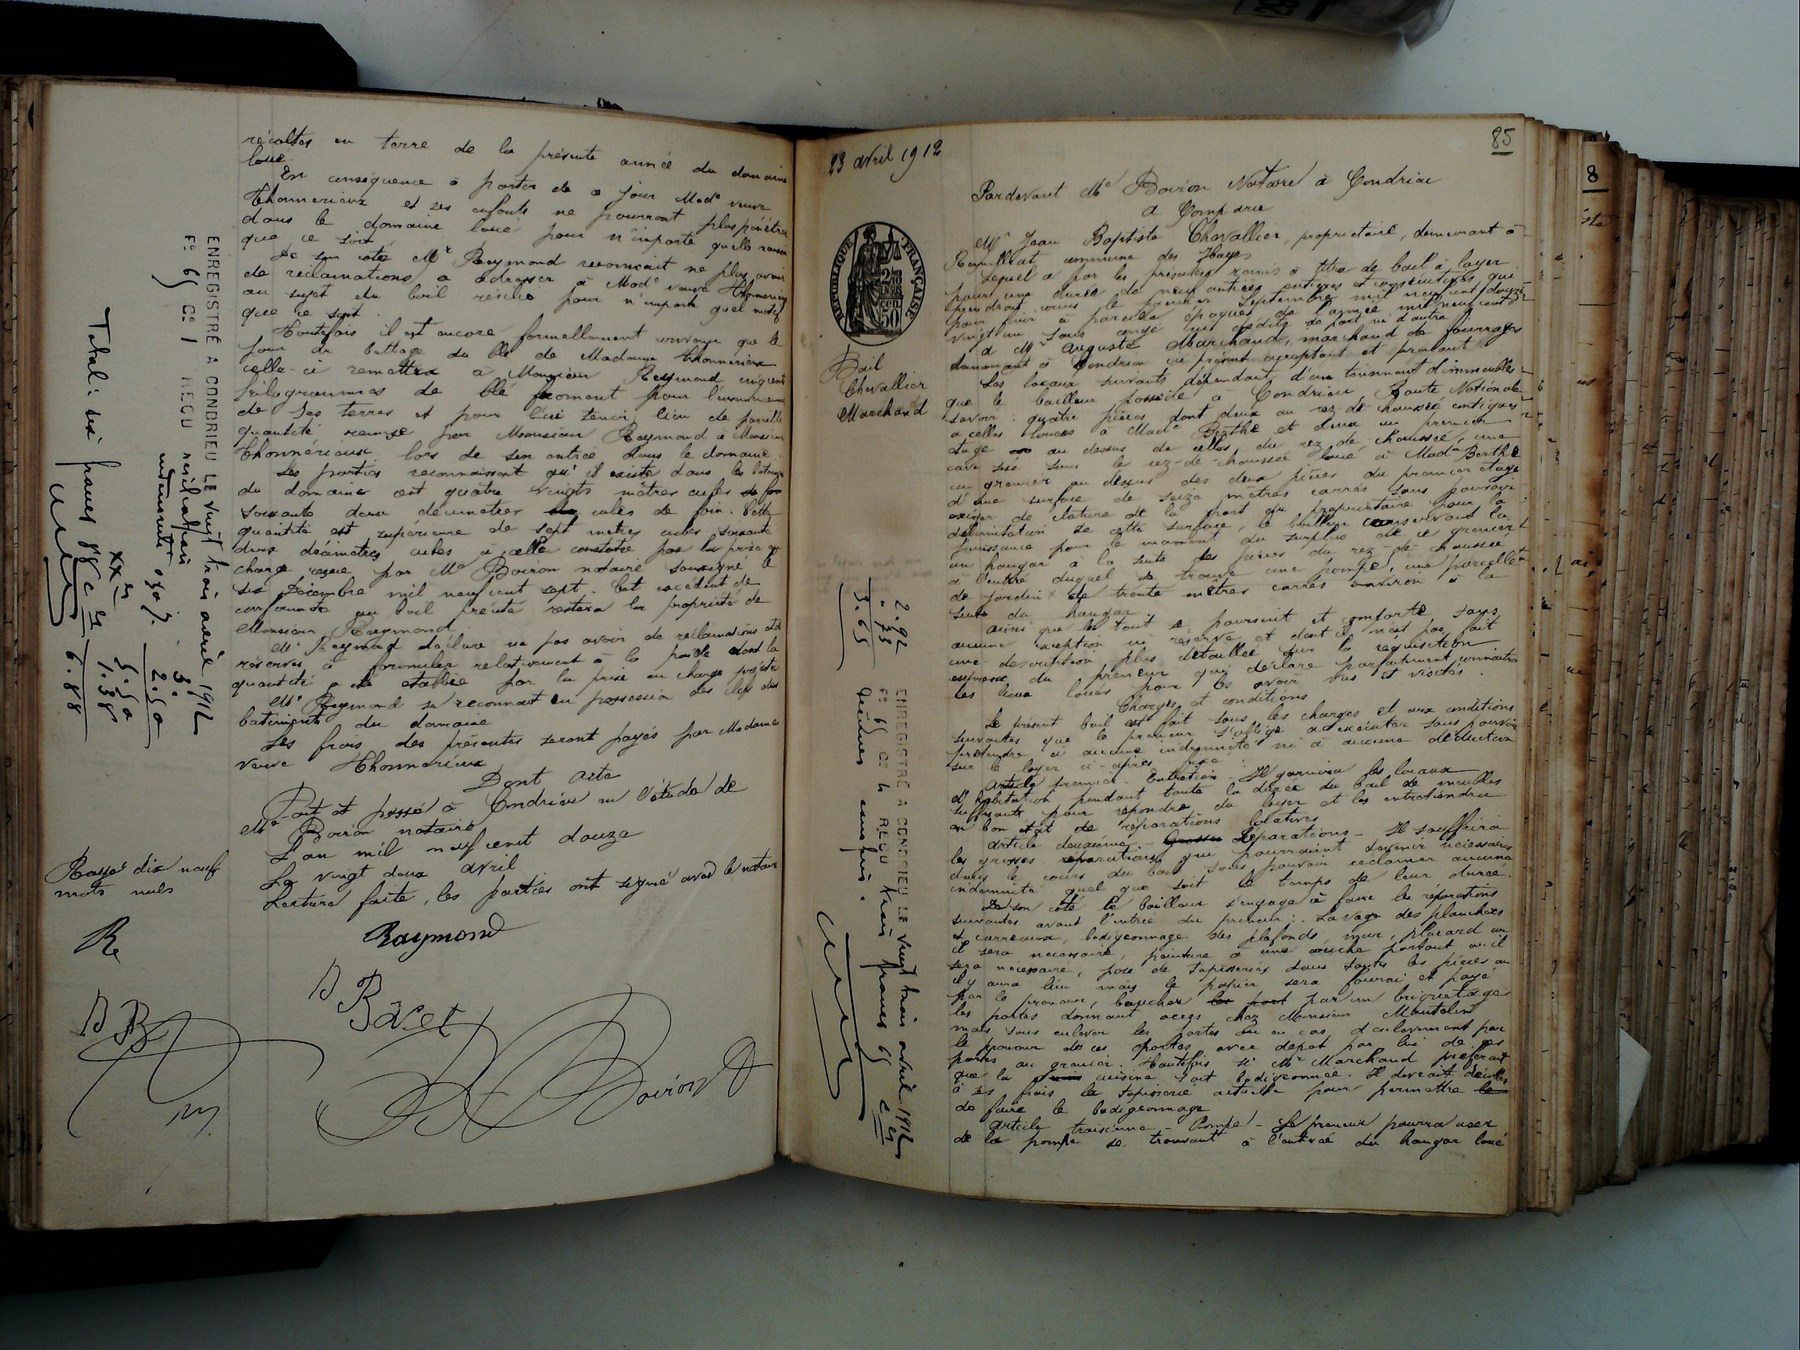 récoltes en terre de la présente année du domaine
loué.
En conséquence à partir de ce jour Made veuve
Thonnerieux et ses enfants ne pourront plus pénétrer
dans le domaine loué pour n'importe quelle raison
que ce soit
De son côté Mr Raymond reconnait ne plus avoir
de réclamations à adresser à Made veuve Thonnerieux
au sujet du bail résilié pour n'importe quel motif
que ce soit.
Toutefois il est encore formellement convenu que le
jour du battage du blé de Madame Thonnerieux
celle-ci remettra à Monsieur Raymond cinquante
kilogrammes de blé froment pour l'ensemencement
de ses terres et pour lui tenir lieu de pareille
quantité remise par Monsieur Raymond à Monsieur
Thonnérieux lors de son entrée dans le domaine.
Les parties reconnaissent qu'il existe dans les bâtiments
du domaine est quatre vingts mètres cubes
soixante deux décimètres cubes de foin. Cette
quantité est supérieure de sept mètres cubes soixante
deux décimètres cubes à celle constatée par la prise en
charge reçue par Me Boiron notaire soussigné le
six Décembre mil neuf cent sept. Cet excédent de
conformité au bail précité restera la propriété de
Monsieur Raymond.
Mr Raymond déclare ne pas avoir de réclamations ni
réserves à formuler relativement à la paille dont la
quantité a été établie par la prise en charge précitée
Mr Raymond se reconnait en possession des clefs des
batiments du domaine
Les frais des présentes seront payés par Madame
veuve Thonnerieux
Dont acte
Fait et passé à Condrieu en l'étude de
Me Boiron notaire
L'an mil neuf cent douze
Le vingt deux avril
Lecture faite, les parties ont signé avec le notaire
Raymond
B Bacet
Boiron
Rayé dix neuf
mots nuls
R
B B
ENREGISTRÉ A CONDRIEU LE vingt trois avril 1912
Fo 65 Co 1 REÇU
3"
2.50
5.50
1.38
6.88
Total: six francs 88 c
23 avril 1912
85
Pardevant Me Boiron Notaire à Condrieu
A Comparu
Mr Jean Baptiste Chevallier, propriétaire, demeurant à
commune des Hayes
Lequel a par les présentes remis à titre de bail à loyer
pour une durée de neuf années entières et consécutives qui
prendront cours le premier Septembre mil neuf cent douze
pour finir à pareille époque de l'année mil neuf cent
vingt un sans congé ni dédite de part ni d'autre
à Mr Auguste Marchand, marchand de fourrages
demeurant à Condrieu ici présent acceptant et prenant
Les locaux suivants dépendant d'un tènement d'immeubles
que le bailleur possède à Condrieu, Route Nationale
savoir: quatre pièces dont deux au rez-de-chaussée contigues
à celles louées à Made Berthe et deux au premier
étage au dessus de celles du rez de chaussée, une
cave sise sous le rez-de-chaussée loué à Made Berthe
un grenier au dessus des deux pièces du premier étage
d'une surface de seize mètres carrés sans pouvoir
exiger de clôture de la part du propriétaire pour la
délimitation de cette surface, le bailleur conservant la
jouissance pour le moment du surplus de ce grenier
un hangar à la suite des pièces du rez de chaussée
à l'entrée duquel se trouve une pompe, une parcelle
de jardin de trente mètres carrés environ à la
suite du hangar.
Ainsi que le tout se poursuit et comporte sans
aucune exception ni réserve et dont il n'est pas fait
une description plus détaillée sur la réquisition
expresse du preneur qui déclare parfaitement connaître
les lieux loués pour les avoir vus et visités.
Charges et conditions
Le présent bail est fait sous les charges et aux conditions
suivantes que le preneur s'oblige à exécuter sans pouvoir
prétendre à aucune indemnité ni à aucune déduction
sur le loyer ci-après fixé:
Article premier - Entretien - Il garnira les locaux
d'habitation pendant toute la durée du bail de meubles
suffisants pour répondre du loyer et les entretiendra
en bon état de réparations locatives
Article deuxième - Grosses Réparations - Il souffrira
les grosses réparations qui pourraient devenir nécessaires
dans le cours du bail sans pouvoir réclamer aucune
indemnité quel que soit le temps de leur durée.
De son côté le bailleur s'engage à faire les réparations
suivantes avant l'entrée du preneur: Lavage des planchers
et carreaux, badigeonnage des plafonds, mur, placard où
il sera nécessaire, peinture à une couche partout où il
sera nécessaire, pose de tapisseries dans toutes les pièces où
il y aura lieu mais le papier sera fourni et payé
par le preneur, boucher les port par un briquetage
les portes donnant accès chez Monsieur
mais sans enlever les portes ou en cas d'enlèvement par
le preneur de ces portes avec dépôt par lui de ces
portes au grenier. Toutefois si Mr Marchand préférait
que la cuisine soit badigeonnée. Il devrait décoller
à ses frais la tapisserie actuelle pour permettre le
de faire le badigeonnage
Article troisième - Pompe - Le preneur pourra user
de la pompe se trouvant à l'entrée du hangar loué
RÉPUBLIQUE FRANÇAISE
50
Bail
Chevallier
Marchand
2.92
" 73
3.65
ENREGISTRÉ A CONDRIEU LE vingt trois avril 1912
Fo 65 Co 4 REÇU trois francs 65 c
8